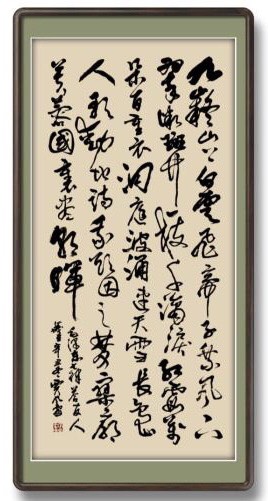 九嶷山上白雲飛帝子乘風下
翠微斑竹一枝千滴淚紅霞萬
朵百重衣洞庭波涌連天雪長島
人歌動地詩我欲因之夢寥廓
芙蓉國裏盡朝暉
毛澤東七律答友人